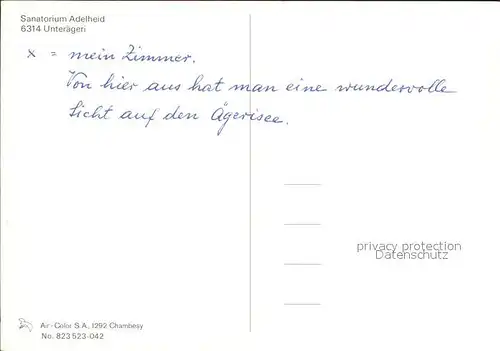 Sanatorium Adelheid
6314 Unterägeri
x = mein Zimmer.
Von hier aus hat man eine wundervolle
Sicht auf den Ägerisee.
privacy protection
Datenschutz
Air-Color S.A., 1292 Chambesy
No. 823 523-042